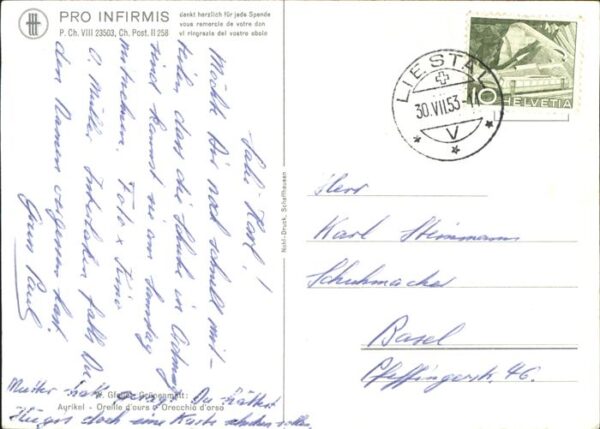 PRO INFIRMIS
P. Ch. VIII 23503, Ch. Post. II 258
dankt herzlich für jede Spende
vous remercie de votre don
vi ringrazia del vostro obolo
Salü Karl!
Möcht Dir noch schnell mit-
teilen, dass die Schuhe in Ordnung
sind kannst sie am Samstag
mitnehmen. Foto x Kino
O. Müller Interlaken falls Du
den Namen vergessen hast.
Gruss Paul
Mutter hat gesagt Du hättest
doch eine Karte sollen
Aurikel - Oreille d'ours - Orecchio d'orso
Nohl-Druck, Schaffhausen
LIESTAL
30.VII.53
V
10 HELVETIA
Herr
Karl Steinmann
Schuhmacher
Basel
Pfeffingerstr. 46.